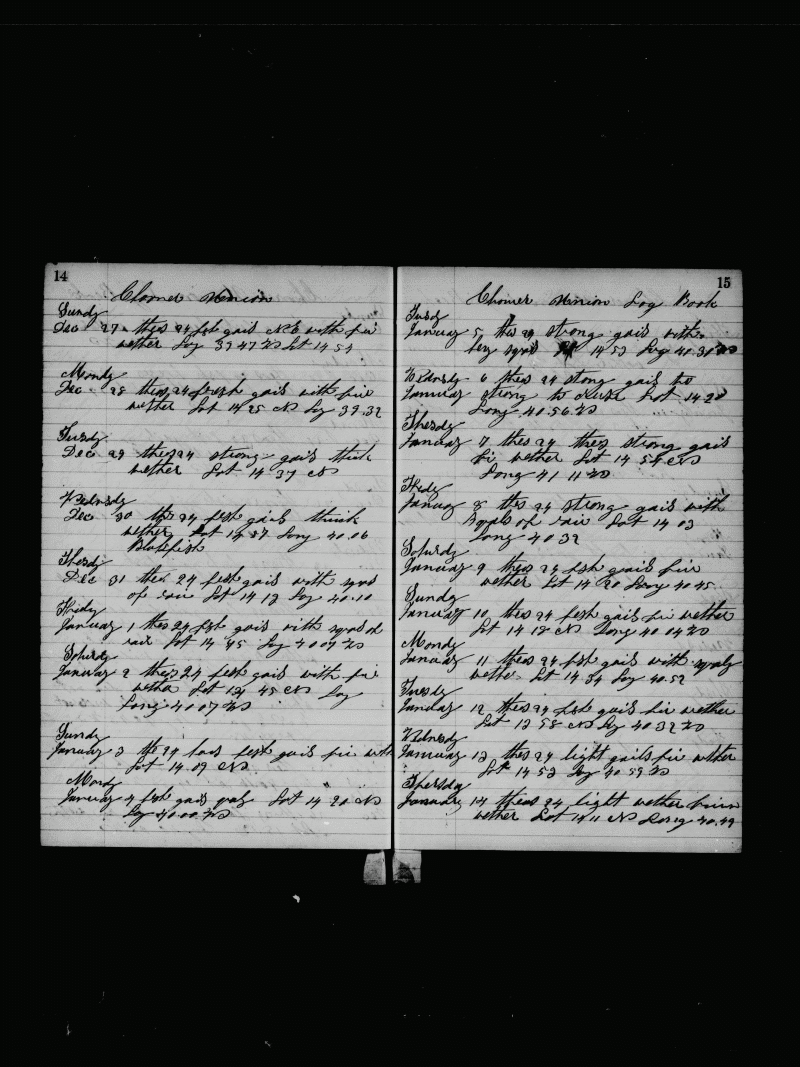 14
Cloomer Union
Sundy
Dec 27 thes 24 fesh gais NE with fir
wether Log 39 47 W Lot 14 54
Mondy
Dec 28 thes 24 fresh gais with fir
wether Lot 14 25 N Log 39.32
Tusdy
Dec 29 thes 24 strong gais think
wether Lot 14 37 N
Wednsdy
Dec 30 the 24 fesh gais think
wether Lot 14 37 Long 40.06
Blackfish
Thesdy
Dec 31 thes 24 fesh gais with sqwd
of rair Lot 14 19 Log 40.10
Fridy
January 1 thes 24 fsh gais with sqwd of
rair Lot 14 45 Log 40 07 W
Soturdy
January 2 thes 24 fesh gais with fir
wether Lot 14 45 N Log
Long 40 07 W
Sundy
January 3 the 24 hors fesh gais fir with
Lot 14.09 N
Mondy
January 4 fsh gais Lot 14 20 N
Log 40.00 W
15
Union Log Book
Tusdy
January 5 the 24 strong gais with
14 52 Log 40.30 W
Wednsdy 6 thes 24 stong gais to
January strong to Lot 14.20
Long 40.56 W
Thesdy
January 7 thes 24 thes strong gais
fir wether Lot 14 54 N
Long 41 11 W
Fridy
January 8 thes 24 strong gais with
sqals of rair Lot 14 03
Long 40 32
Soturdy
January 9 thes 24 fsh gais fir
wether Lot 14 20 Long 40 45
Sundy
January 10 thes 24 fesh gais fir wether
Lot 14 12 N Long 40 04 W
Mondy
January 11 thes 24 fsh gais with sqaly
wether Lot 14 34 Log 40.52
Tuesdy
January 12 thes 24 fsh gais fir wether
Lot 13 58 N Log 40 32 W
Wednesdy
January 13 thes 24 light gails fir wether
Lot 14 52 Log 40 59 W
Thersday
January 14 thes 24 light wether
wether Lot 14 11 N Long 40.49